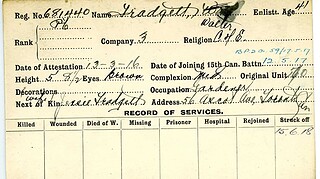 Reg. No. 681440 Name Tradgett, Enlistt. Age 41
Walter
Rank Pte Company 3 Religion C of E.
Date of Attestation 13-3-16 Date of Joining 15th Can. Battn 12.5.17
Height 5' Eyes Brown Complexion Original Unit
Decorations Occupation Gardener
Next of Kin Jessie Tradgett Address 56 Ave Toronto
RECORD OF SERVICES.
Killed Wounded Died of W. Missing Prisoner Hospital Rejoined Struck off
15.6.18